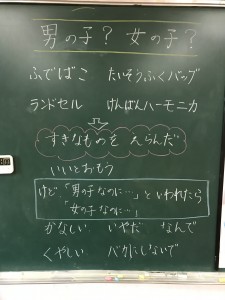 男の子？ 女の子？
ふでばこ たいそうふくバッグ
ランドセル けんばんハーモニカ
すきなものを えらんだ
いいとおもう
けど 「男の子なのに…」といわれたら
「女の子なのに…」
かなしい いやだ なんで
くやしい バカにしないで